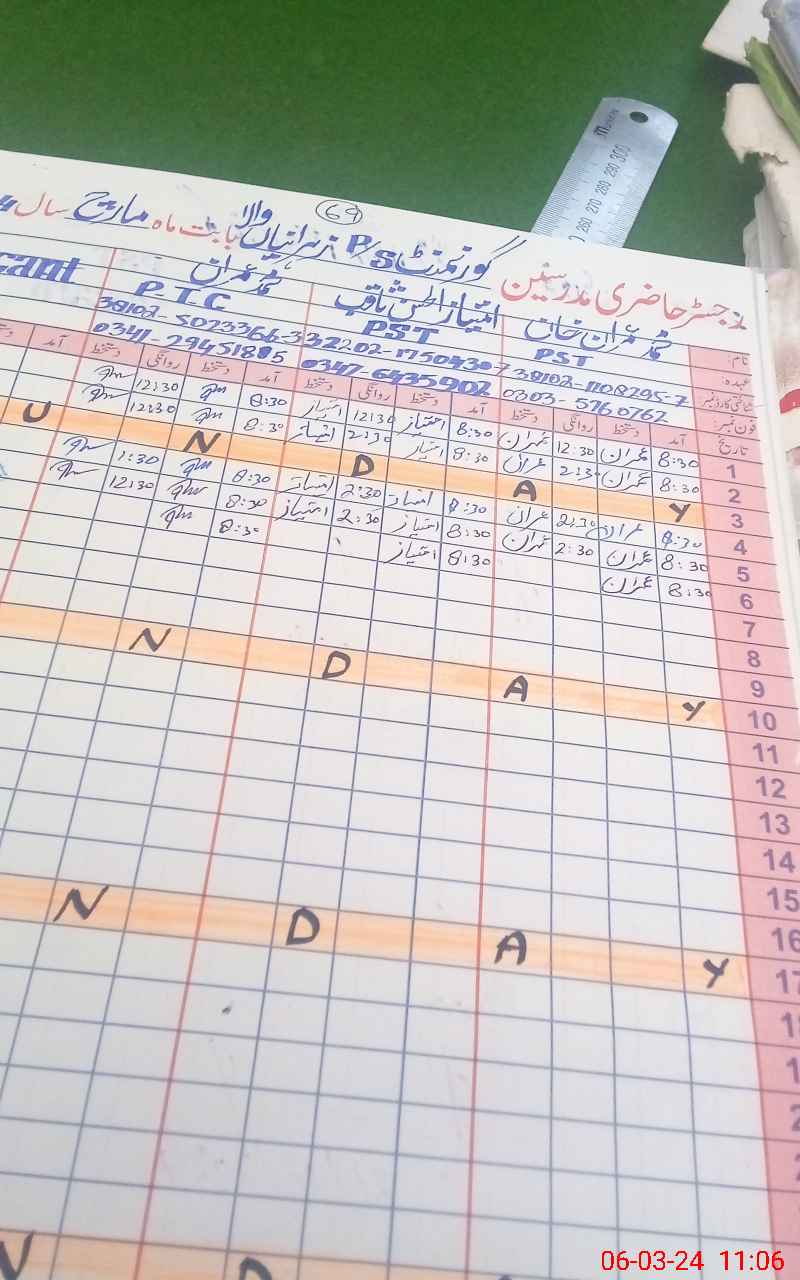 69
رجسٹر حاضری مدرسین گورنمنٹ P/S زہرانیاں والا بابت ماہ مارچ سال
نام: محمد عمران خان امتیاز الحسن ثاقب محمد عمران cant
عہدہ: PST PST P.T.C
شناختی کارڈ نمبر: 38102-1108295-7 32202-1750430-7 38102-5023366-3
فون نمبر: 0303-5760762 0347-6435902 0341-2945185
تاریخ آمد دستخط روانگی دستخط آمد دستخط روانگی دستخط آمد دستخط روانگی دستخط آمد
1 8:30 عمران 12:30 عمران 8:30 امتیاز 12:30 امتیاز 8:30 12:30
2 8:30 عمران 2:30 عمران 8:30 امتیاز 2:30 امتیاز 8:30 12:30
3 U N D A Y
4 8:30 عمران 2:30 عمران 8:30 امتیاز 2:30 امتیاز 8:30 1:30
5 8:30 عمران 2:30 عمران 8:30 امتیاز 2:30 امتیاز 8:30 12:30
6 8:30 عمران 8:30 امتیاز 8:30
7
8
9
10 N D A Y
11
12
13
14
15
16
17 N D A Y
N D
300
290
280
270
260
06-03-24 11:06